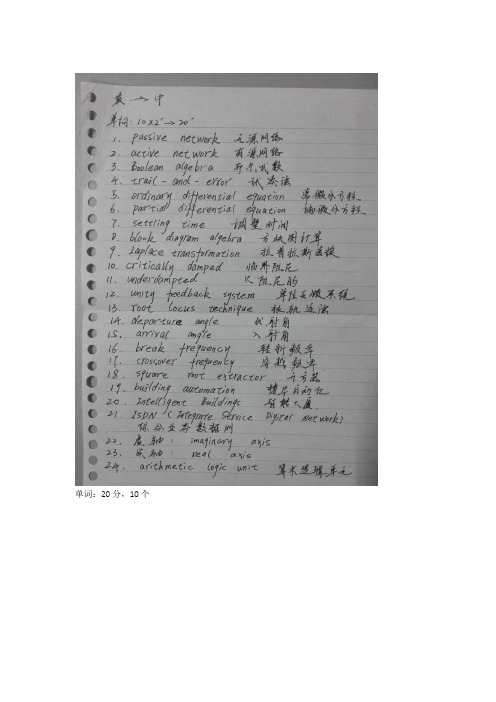 英→中
单词: 10×2'→20'
1. passive network 无源网络
2. active network 有源网络
3. Boolean algebra 布尔代数
4. trail-and-error 试凑法
5. ordinary differential equation 常微分方程
6. partial differential equation 偏微分方程
7. settling time 调整时间
8. block diagram algebra 方块图计算
9. Laplace transformation 拉普拉斯变换
10. critically damped 临界阻尼
11. underdampted 欠阻尼的
12. unity feedback system 单位反馈系统
13. root locus technique 根轨迹法
14. departure angle 出射角
15. arrival angle 入射角
16. break frequency 转折频率
17. crossover frequency 穿越频率
18. square root extractor 开方器
19. building automation 楼宇自动化
20. Intelligent Buildings 智能大厦
21. ISDN (Integrare Service Digital Network)
综合业务数据网
22. 虚轴: imaginary axis
23. 实轴: real axis
24. arithmetic logic unit 算术逻辑单元
单词：20分，10个